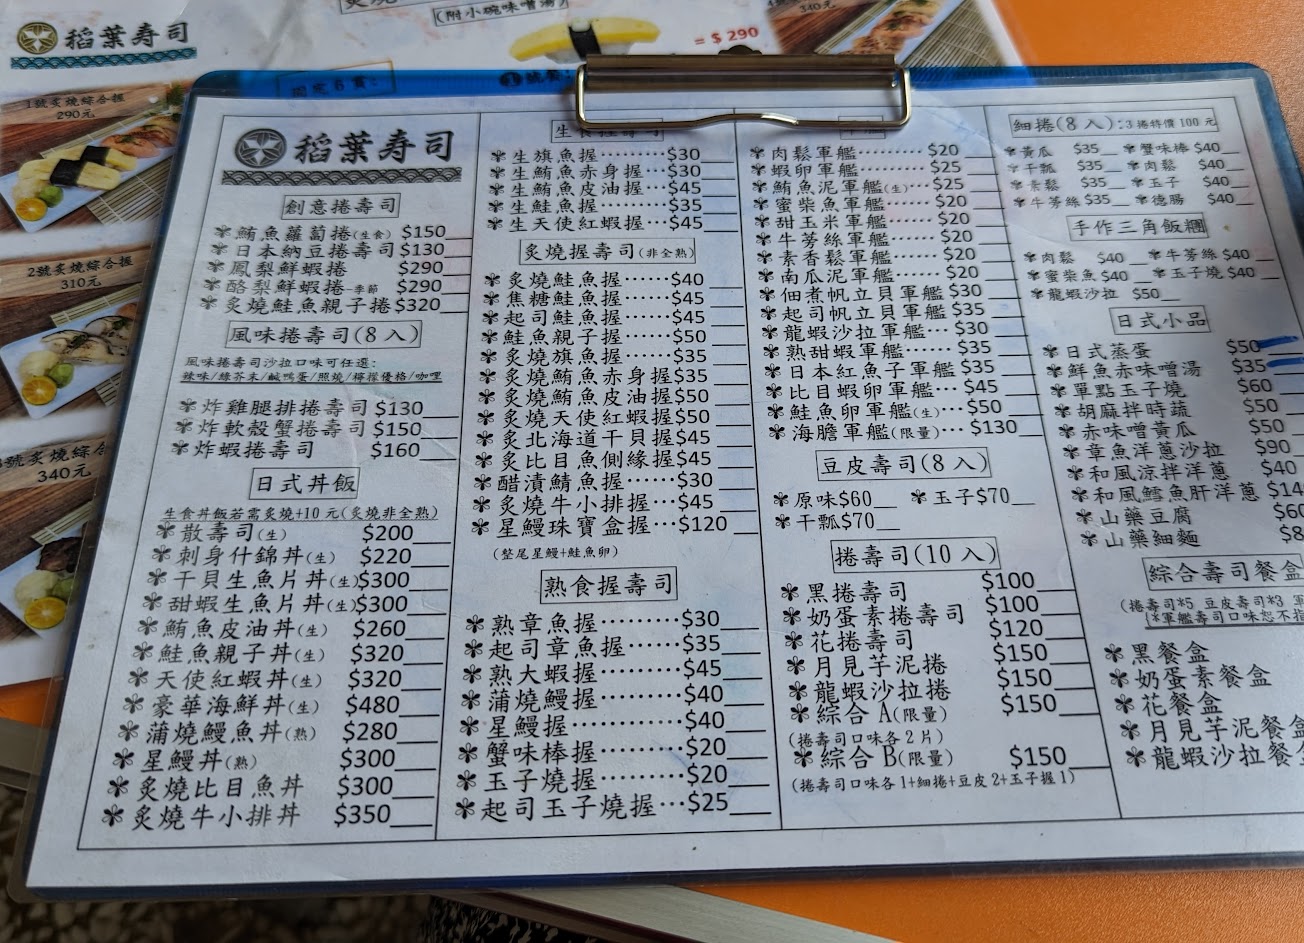 (附小碗味噌湯)
= $ 290
340元
稻葉寿司
1號炙燒綜合握
290元
2號炙燒綜合握
310元
號炙燒綜合
340元
稻葉寿司
創意捲壽司
鮪魚蘿蔔捲(生食) $150
日本納豆捲壽司 $130
鳳梨鮮蝦捲 $290
酪梨鮮蝦捲-季節 $290
炙燒鮭魚親子捲 $320
風味捲壽司(8 入)
風味捲壽司沙拉口味可任選:
辣味/綠芥末/鹹鴨蛋/照燒/檸檬優格/咖哩
炸雞腿排捲壽司 $130
炸軟殼蟹捲壽司 $150
炸蝦捲壽司 $160
日式丼飯
生食丼飯若需炙燒+10 元(炙燒非全熟)
散壽司(生) $200
刺身什錦丼(生) $220
干貝生魚片丼(生) $300
甜蝦生魚片丼(生) $300
鮪魚皮油丼(生) $260
鮭魚親子丼(生) $320
天使紅蝦丼(生) $320
豪華海鮮丼(生) $480
蒲燒鰻魚丼(熟) $280
星鰻丼(熟) $300
炙燒比目魚丼 $300
炙燒牛小排丼 $350
生食握壽司
生旗魚握………$30
生鮪魚赤身握…$30
生鮪魚皮油握…$45
生鮭魚握………$35
生天使紅蝦握…$45
炙燒握壽司(非全熟)
炙燒鮭魚握……$40
焦糖鮭魚握……$45
起司鮭魚握……$45
鮭魚親子握……$50
炙燒旗魚握……$35
炙燒鮪魚赤身握$35
炙燒鮪魚皮油握$50
炙燒天使紅蝦握$50
炙北海道干貝握$45
炙比目魚側緣握$45
醋漬鯖魚握……$30
炙燒牛小排握…$45
星鰻珠寶盒握…$120
(整尾星鰻+鮭魚卵)
熟食握壽司
熟章魚握………$30
起司章魚握……$35
熟大蝦握………$45
蒲燒鰻握………$40
星鰻握…………$40
蟹味棒握………$20
玉子燒握………$20
起司玉子燒握…$25
肉鬆軍艦………$20
蝦卵軍艦………$25
鮪魚泥軍艦(生)…$25
蜜柴魚軍艦……$20
甜玉米軍艦……$20
牛蒡絲軍艦……$20
素香鬆軍艦……$20
南瓜泥軍艦……$20
佃煮帆立貝軍艦 $30
起司帆立貝軍艦 $35
龍蝦沙拉軍艦…$30
熟甜蝦軍艦……$35
日本紅魚子軍艦 $35
比目蝦卵軍艦…$45
鮭魚卵軍艦(生)…$50
海膽軍艦(限量)…$130
豆皮壽司(8 入)
原味$60 玉子$70
干瓢$70
捲壽司(10 入)
黑捲壽司 $100
奶蛋素捲壽司 $100
花捲壽司 $120
月見芋泥捲 $150
龍蝦沙拉捲 $150
綜合 A(限量) $150
(捲壽司口味各 2 片)
綜合 B(限量) $150
(捲壽司口味各 1+細捲+豆皮 2+玉子握 1)
細捲(8 入):3 捲特價 100 元
黃瓜 $35 蟹味棒 $40
干瓢 $35 肉鬆 $40
素鬆 $35 玉子 $40
牛蒡絲 $35 德腸 $40
手作三角飯糰
肉鬆 $40 牛蒡絲 $40
蜜柴魚 $40 玉子燒 $40
龍蝦沙拉 $50
日式小品
日式蒸蛋 $50
鮮魚赤味噌湯 $35
單點玉子燒 $60
胡麻拌時蔬 $50
赤味噌黃瓜 $50
章魚洋蔥沙拉 $90
和風涼拌洋蔥 $40
和風鱈魚肝洋蔥 $14
山藥豆腐 $60
山藥細麵 $8
綜合壽司餐盒
(捲壽司*5 豆皮壽司*3 軍
*軍艦壽司口味恕不指
黑餐盒
奶蛋素餐盒
花餐盒
月見芋泥餐盒
龍蝦沙拉餐